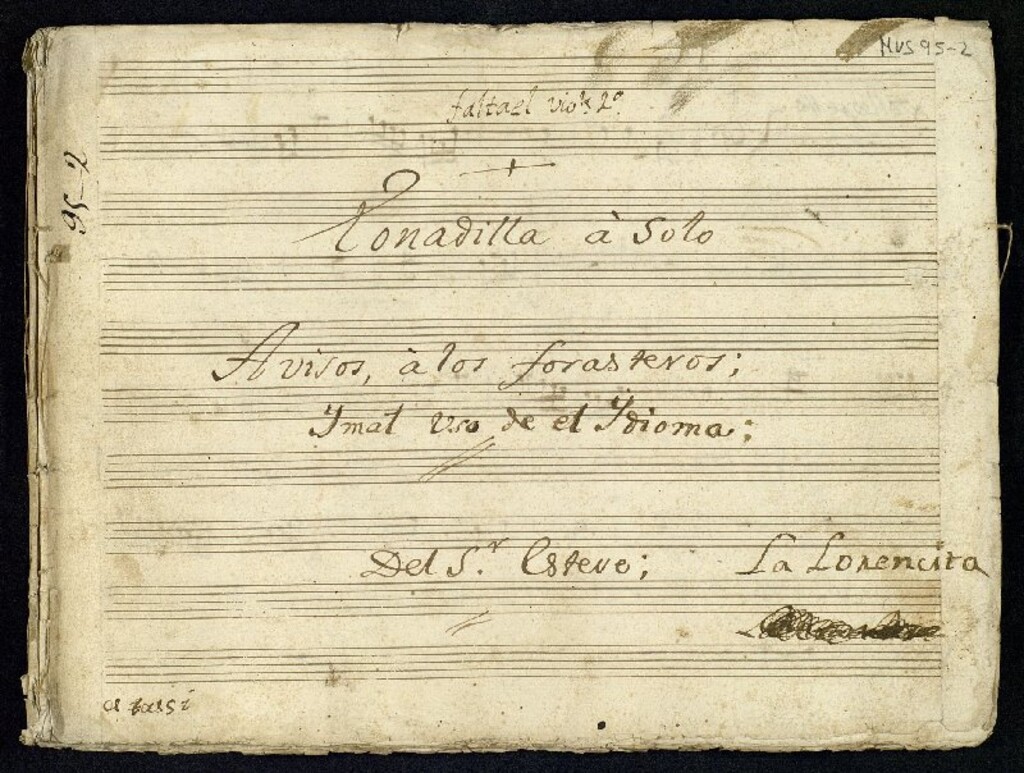 MUS 95-2
falta el viol. 2º
95-2
Tonadilla à Solo
Avisos, à los forasteros;
Y mal Uso de el Ydioma;
Del S.r Esteve; La Lorencita